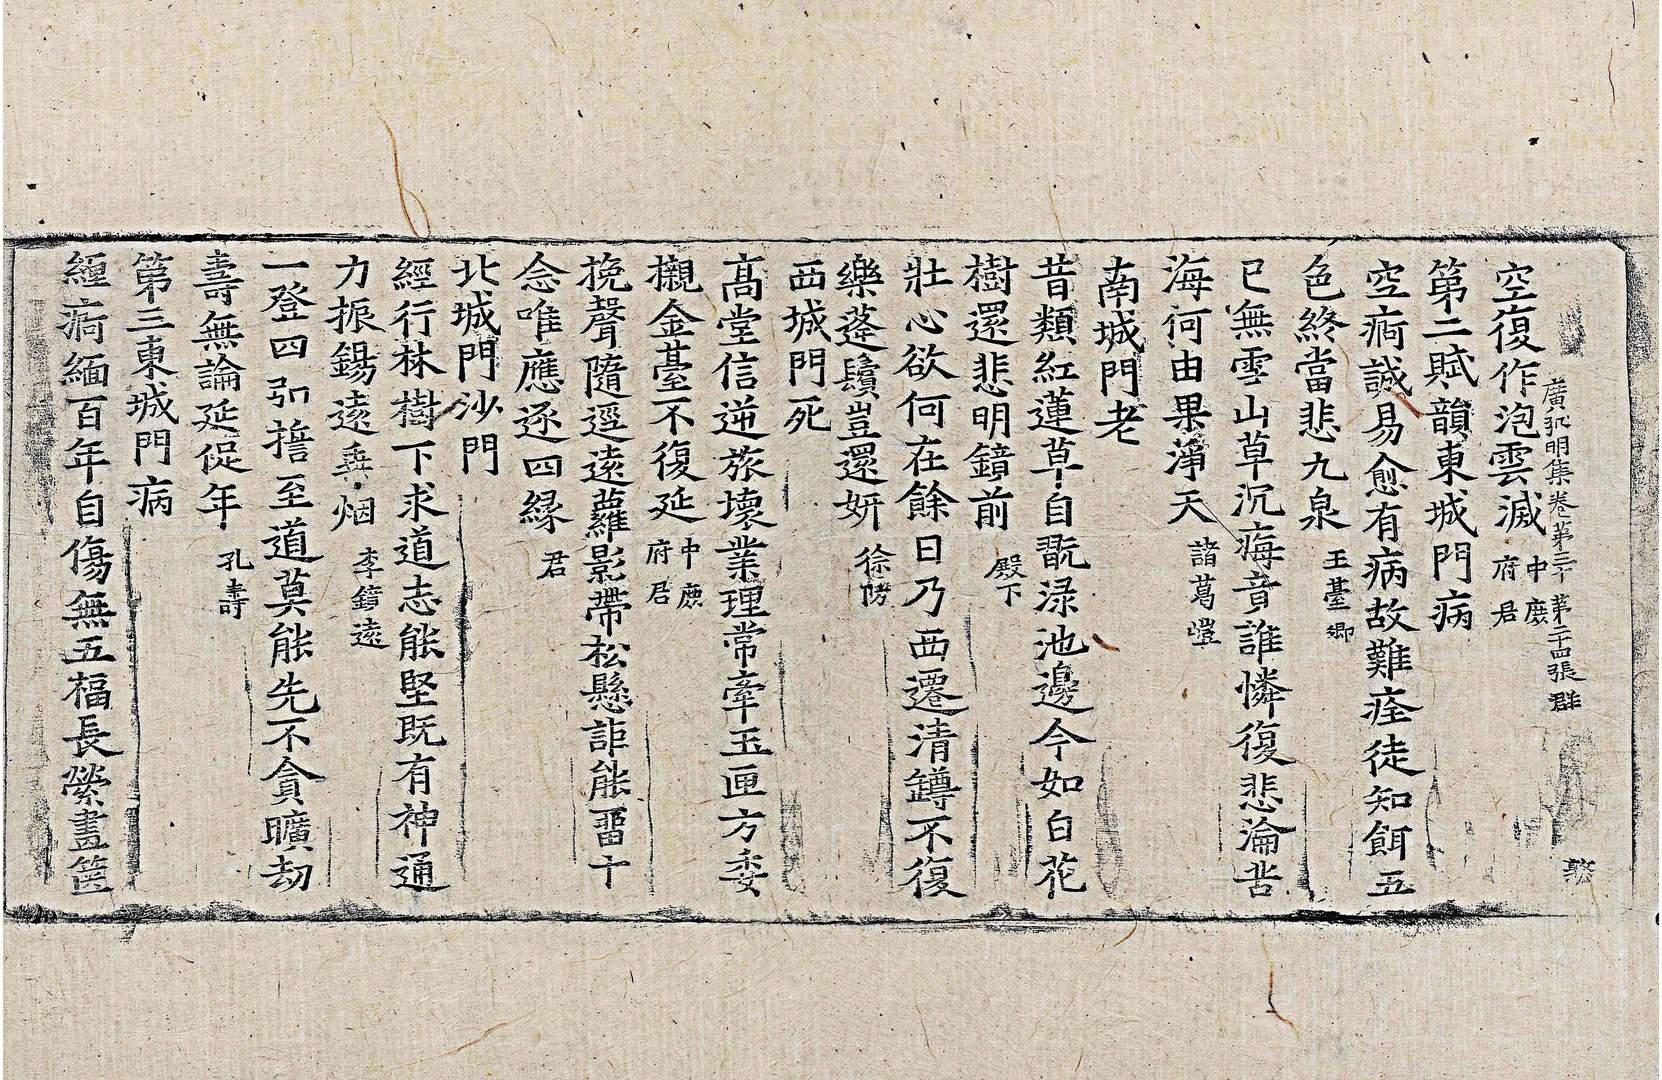 廣弘明集卷第三十 第二十四張 群
空復作泡雲滅 中庶府君
第二賦韻東城門病
空痾誠易愈有病故難痊徒知餌五
色終當悲九泉 王臺卿
已無雪山草沉海音誰憐復悲淪苦
海何由果淨天 諸葛愷
南城門老
昔類紅蓮草自翫淥池邊今如白花
樹還悲明鏡前 殿下
壯心欲何在餘日乃西遷清罇不復
樂蓬鬢豈還姸 徐防
西城門死
高堂信逆旅壞業理常牽玉匣方委
櫬金臺不復延 中庶府君
挽聲隨逕遠蘿影帶松懸詎能留十
念唯應逐四緣 君
北城門沙門
經行林樹下求道志能堅旣有神通
力振錫遠乗烟 李鏡遠
一登四弘擔至道莫能先不貪曠劫
壽無論延促年 孔壽
第三東城門病
纏痾緬百年自傷無五福長縈畫篋